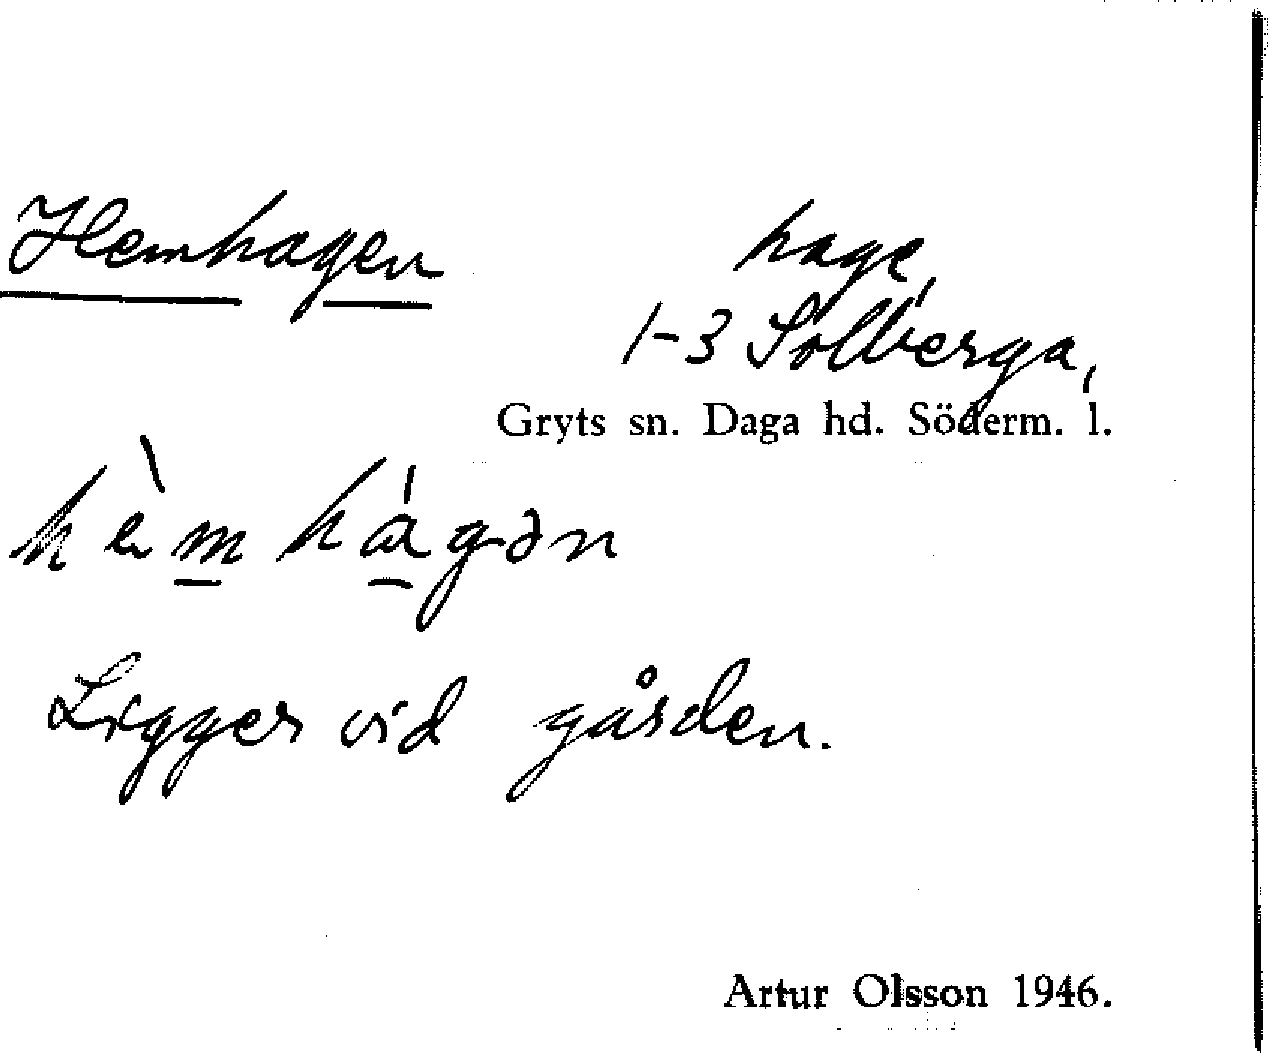 Hemhagen hage,
1-3 Solberga,
Gryts sn. Daga hd. Söderm. l.
hèmhágən
Ligger vid gården.
Artur Olsson 1946.